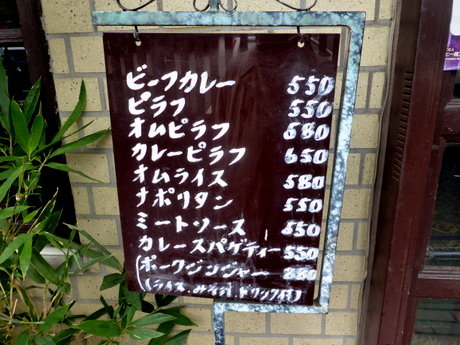 ビーフカレー 550
ピラフ 550
オムピラフ 680
カレーピラフ 650
オムライス 580
ナポリタン 550
ミートソース 550
カレースパゲティー 550
(ポークジンジャー 880
(ライス、みそ汁、ドリンク付)